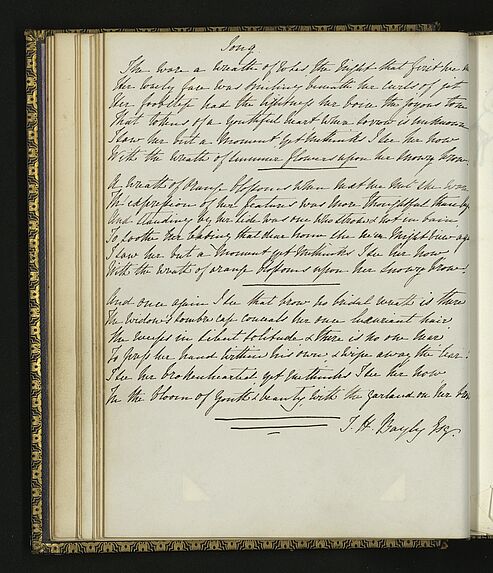 Song
She wore a wreath of roses the Night that first we m
Her lovely face was smiling beneath her curls of jet
Her footstep had the lightness her voice the joyous tone
That tokens of a youthful heart where sorrow is unknown
I saw her but a Moment yet methinks I see her now
With the wreath of summer flowers upon her snowy brow.
A Wreath of Orange blossoms when next we met she wore
The expression of her features was more thoughtful than bef
And standing by her side was one who strove & not in vain
To soothe her leaving that dear home she ne'er might view aga
I saw her but a Moment yet methinks I see her now
With the wreath of orange blossoms upon her snowy brow!
And once again I see that brow no bridal wreath is there
The widow's sombre cap conceals her once luxuriant hair
She weeps in silent solitude & there is no one near
To press her hand within his own & wipe away the tear!
I see her brokenhearted, yet methinks I see her now
In the bloom of youth & beauty, with the garland on her brow
T. H. Bayly Esq.